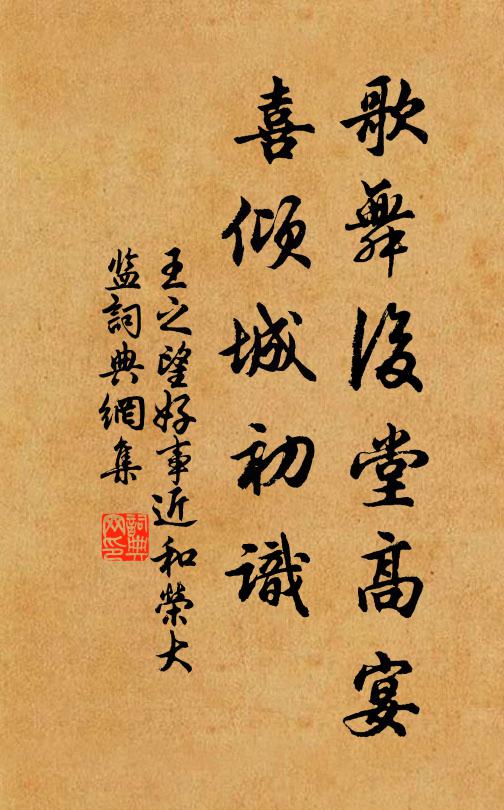 歌舞後堂高宴
喜傾城初識
王之望好事近和榮大
監詞典網集
詞典
网印